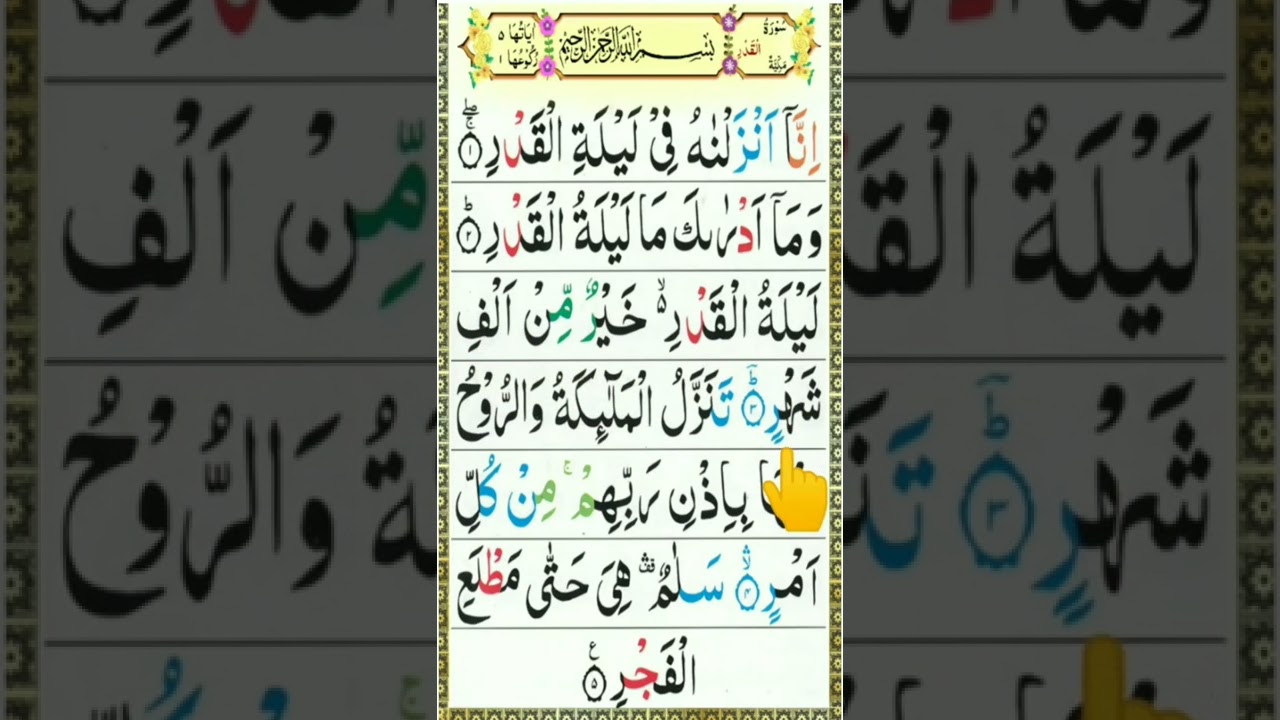 سُوْرَةُ الْقَدْرِ مَكِّيَّةٌ
بِسْمِ اللّٰهِ الرَّحْمٰنِ الرَّحِيْمِ
اٰيَاتُهَا ٥ رُكُوْعُهَا ١
اِنَّاۤ اَنْزَلْنٰهُ فِیْ لَیْلَةِ الْقَدْرِ ۚۖ ۝١
وَمَاۤ اَدْرٰىكَ مَا لَیْلَةُ الْقَدْرِ ؕ ۝٢
لَیْلَةُ الْقَدْرِ ۙ۬ خَیْرٌ مِّنْ اَلْفِ
شَهْرٍ ؕؔ ۝٣ تَنَزَّلُ الْمَلٰٓىِٕكَةُ وَالرُّوْحُ
بِاِذْنِ رَبِّهِمْ ۚ مِنْ كُلِّ
اَمْرٍ ۙۛ ۝٤ سَلٰمٌ ۛ۫ هِیَ حَتّٰی مَطْلَعِ
الْفَجْرِ ۝٥ ع